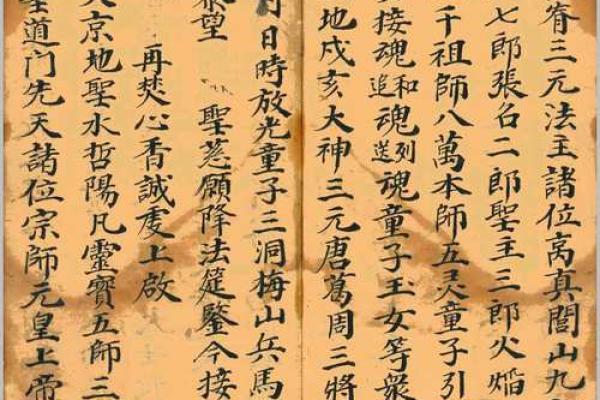 眷三元法主諸位高真閭山九
七郎張名二郎聖主三郎火焰
千祖師八萬本師五灵童子引
接魂和追魂列送魂童子玉女等衆
地戍亥大神三元唐葛周三將
日時放光童子三洞梅山兵馬
望 聖慈願降法筵鑒今接
再焚心香誠虔上啟
京地聖水哲陽凡靈寶五師三
道門先天諸位宗師元皇上帝